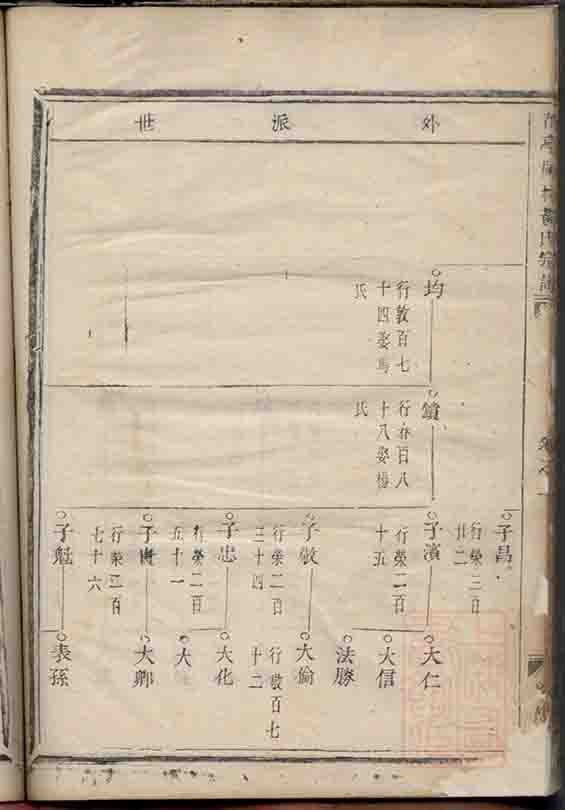 外派世
均
行敦百七
十四娶馬
氏
鑌
行 百八
十八娶楊
氏
子昌
行榮三百
廿二
子濱
行榮二百
十五
子敬
行榮二百
三十四
子忠
行榮二百
五十一
子
行榮二百
七十六
子魁
大仁
大信
法勝
大倫
行敬百七
十二
大化
大
大卿
表孫